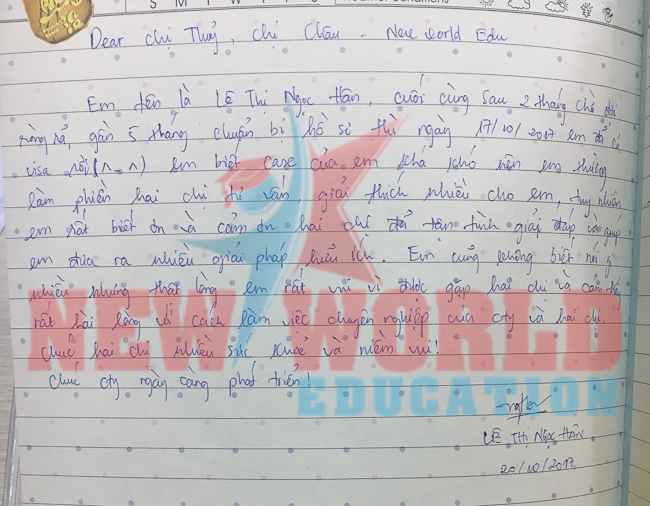 S M T
Dear chị Thuỷ, chị Châu - New world Edu
Em tên là Lê Thị Ngọc Hân, cuối cùng sau 2 tháng chờ đợi
ròng rả, gần 5 tháng chuẩn bị hồ sơ thì ngày 17/10/2017 em đã có
visa rồi (^.^) em biết case của em khá khó nên em thường
làm phiền hai chị tư vấn, giải thích nhiều cho em, tuy nhiên
em rất biết ơn và cảm ơn hai chị đã tận tình giải đáp và giúp
em đưa ra nhiều giải pháp hữu ích. Em cũng không biết nói gì
nhiều nhưng thật lòng em rất vui vì được gặp hai chị và cảm thấy
rất hài lòng về cách làm việc chuyên nghiệp của cty và hai chị.
Chúc hai chị nhiều sức khoẻ và niềm vui!
Chúc cty ngày càng phát triển!
NEW WORLD
EDUCATION
LÊ THỊ NGỌC HÂN
20/10/2017